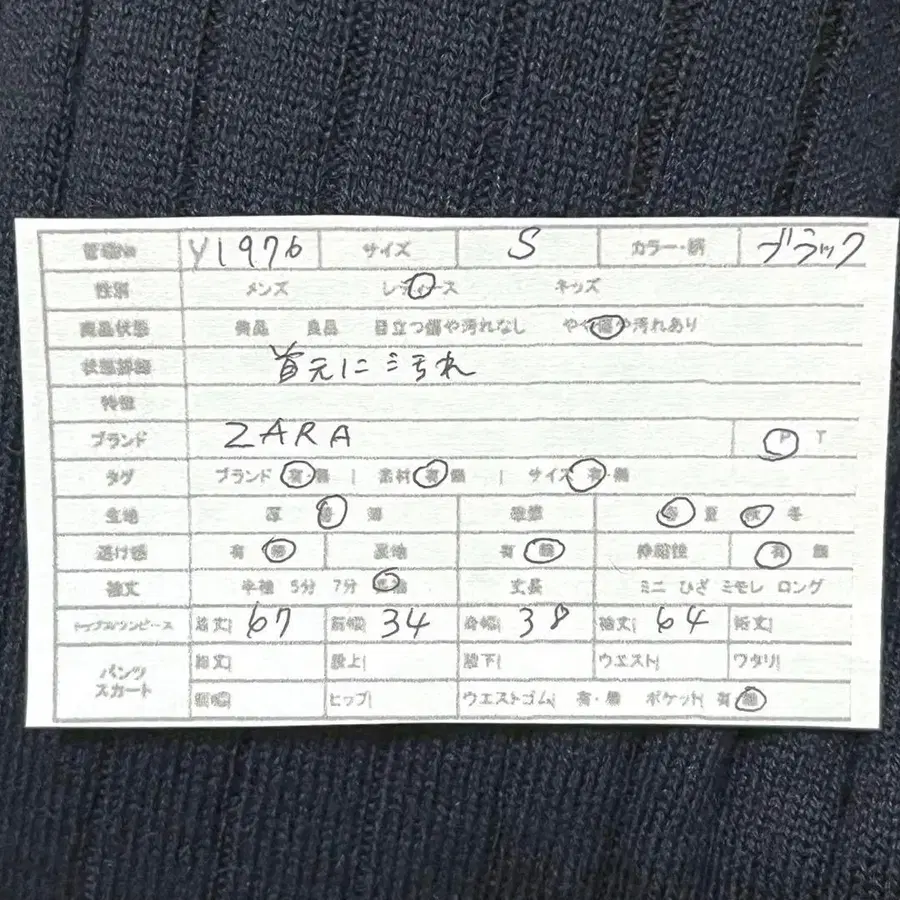 管理No Y1976 サイズ S カラー・柄 ブラック
性別 メンズ レディース キッズ
商品状態 美品 良品 目立つ傷や汚れなし やや傷や汚れあり
状態詳細 首元に汚れ
特徴
ブランド ZARA P T
タグ ブランド 有・無 | 素材 有・無 | サイズ 有・無
生地 厚 普 薄 季節 春 夏 秋 冬
透け感 有 無 裏地 有 無 伸縮性 有 無
袖丈 半袖 5分 7分 長袖 丈長 ミニ ひざ ミモレ ロング
トップス/ワンピース 着丈 67 肩幅 34 身幅 38 袖丈 64 裄丈
パンツ スカート 総丈 股上 股下 ウエスト ワタリ
裾幅 ヒップ ウエストゴム 有・無 ポケット 有 無